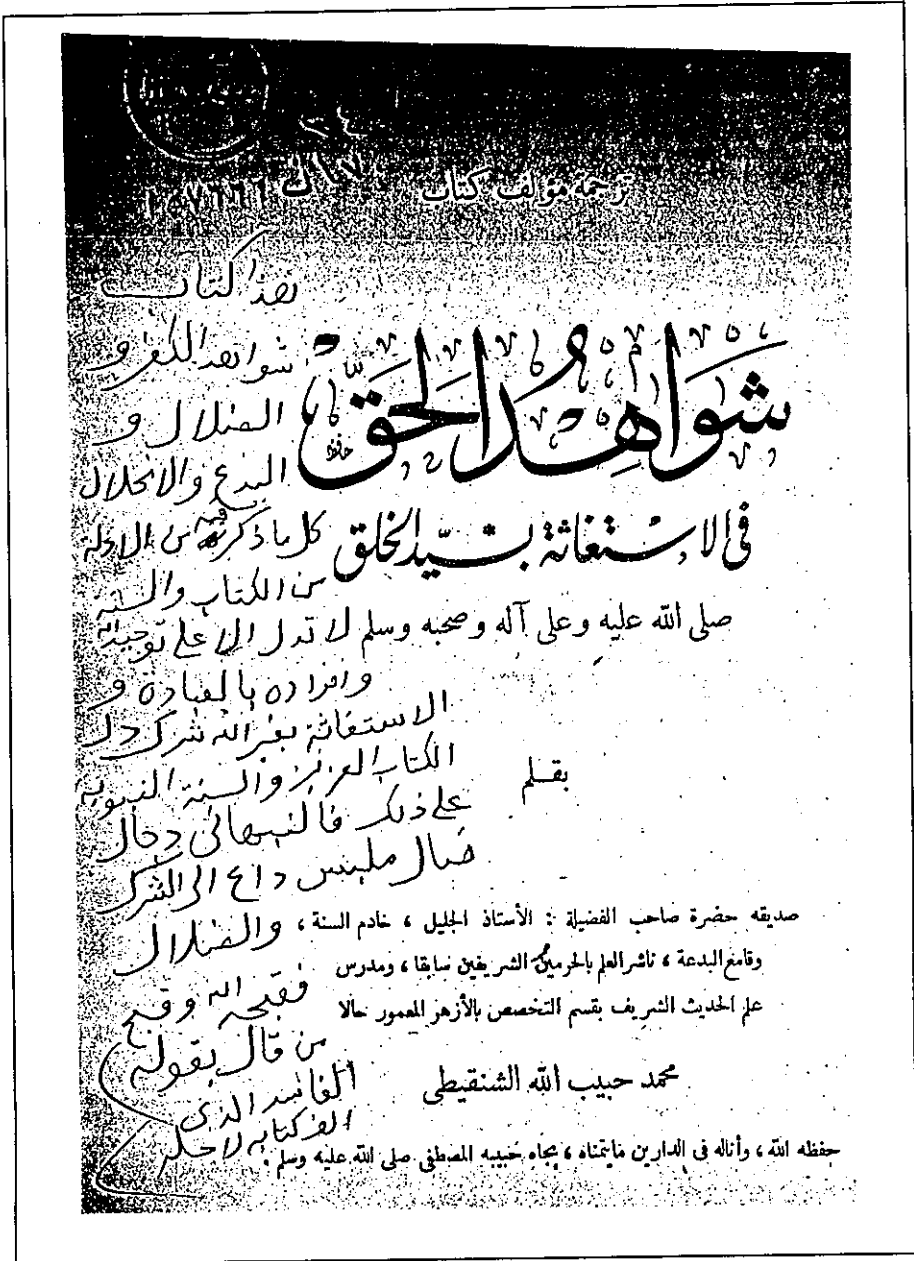 ترجمة مؤلف كتاب
شَوَاهِدُ الْحَقِّ
فى الاستغاثة بسيّد الخلق
صلى الله عليه وعلى آله وصحبه وسلم
بقلم
صديقه حضرة صاحب الفضيلة : الأستاذ الجليل ، خادم السنة ،
وقامع البدعة ، ناشر العلم بالحرمين الشريفين سابقا ، ومدرس
علم الحديث الشريف بقسم التخصص بالأزهر المعمور حالا
محمد حبيب الله الشنقيطى
حفظه الله ، وأناله فى الدارين مايتمناه ، بجاه حبيبه المصطفى صلى الله عليه وسلم .
هذا كتاب
شواهد الكفر و
الضلال و
البدع والانحلال
كل ما ذكر فيه من الادلة
من الكتاب والسنة
لا تدل الا على توحيد الله
وافراده بالعبادة و
الاستغاثة بغير الله شرك دل
الكتاب العزيز والسنة النبوية
على ذلك فالنبهانى دجال
ضال ملبس داع الى الشرك
والضلال
فقبحه الله وقبح
من قال بقوله
الفاسد الذى
الف كتابه لاجله